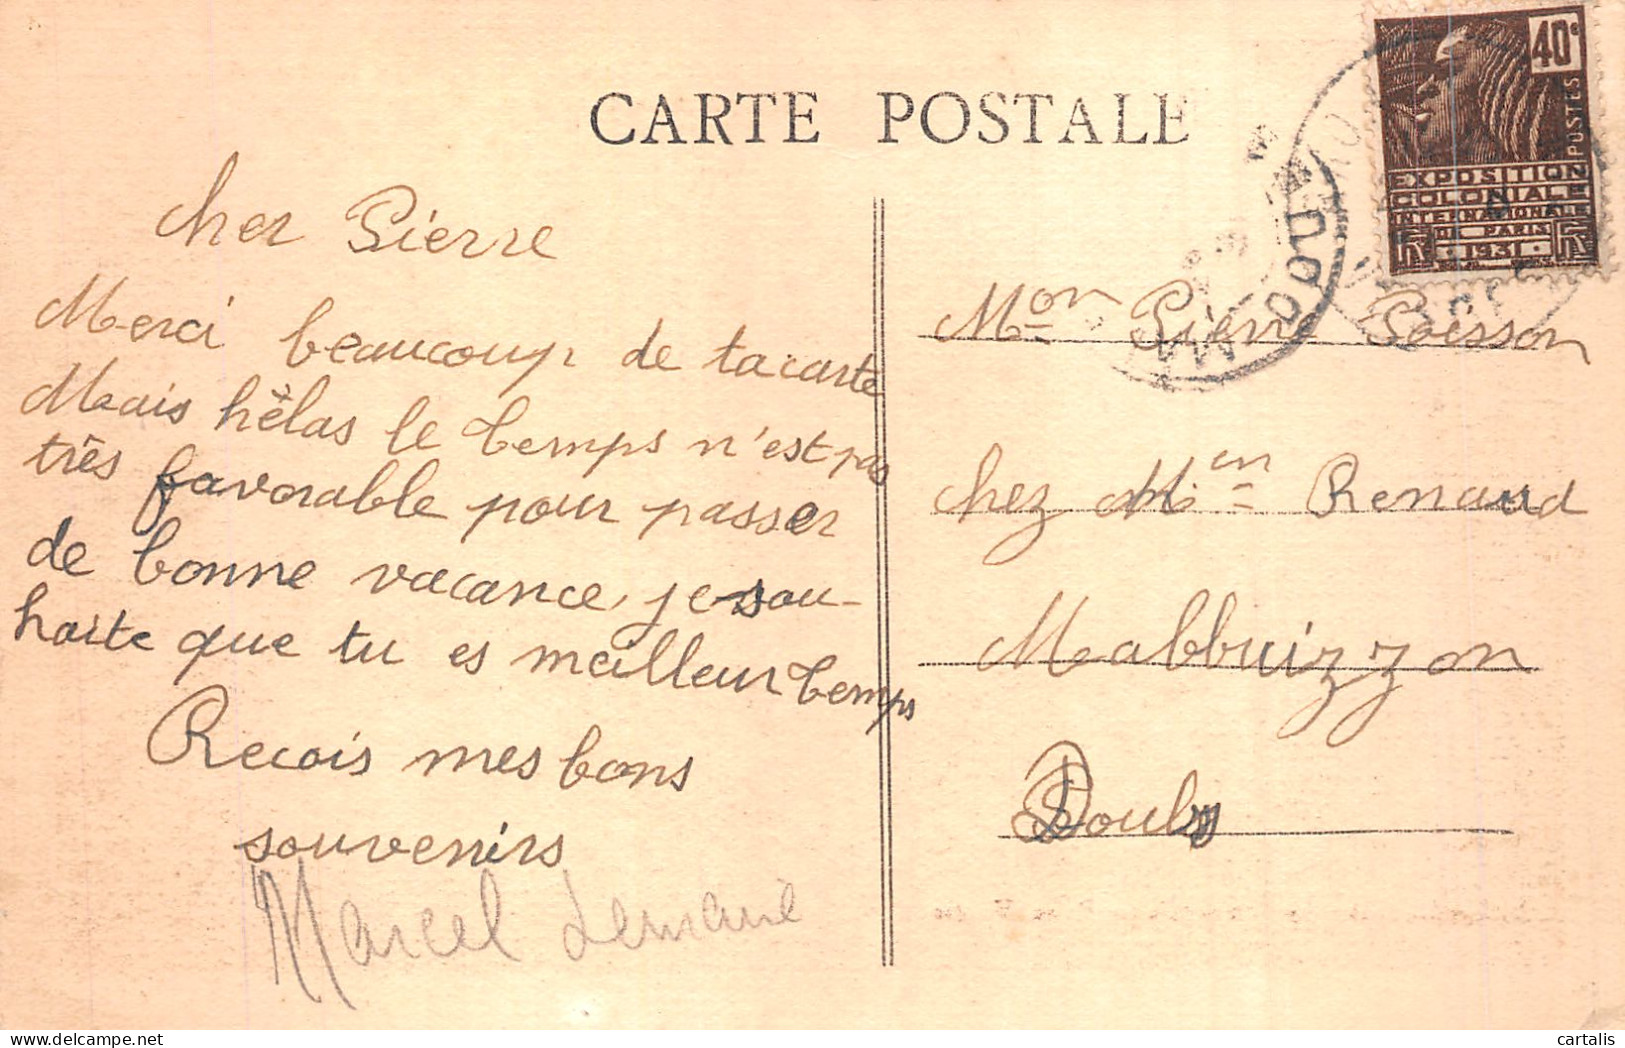 CARTE POSTALE
cher Pierre
Merci beaucoup de ta carte
Mais hêlas le temps n'est pas
très favorable pour passer
de bonne vacance, je sou-
haite que tu es meilleur temps
Recois mes bons
souvenirs
Marcel
40c
POSTES
EXPOSITION
COLONIALE
INTERNATIONALE
DE PARIS
1931
Mon Pierre Poisson
chez Men Renaud
Mabbuizzon
Doubs
cartalis